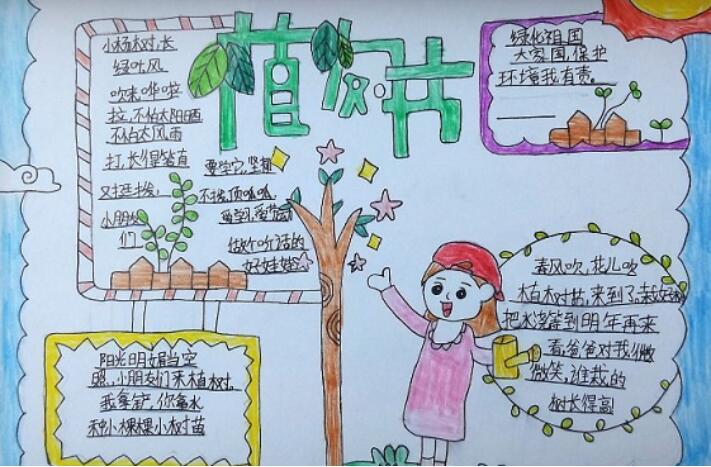 植树节
小杨树,长
绿叶,风
吹来哗啦
拉,不怕太阳晒
不怕大风雨
打,长得笔直
又挺拔,
小朋友
们
要学它,坚强
不拔,顶呱呱,
爱学习,爱劳动
做个听话的
好娃娃
绿化祖国
大家园,保护
环境我有责。
春风吹,花儿吹
植树苗,来到了,栽好树
把水浇等到明年再来
看,爸爸对我微微
微笑,谁栽的
树长得高
阳光明媚当空
照,小朋友们来植树,
我拿铲,你拿水
种小棵棵小树苗